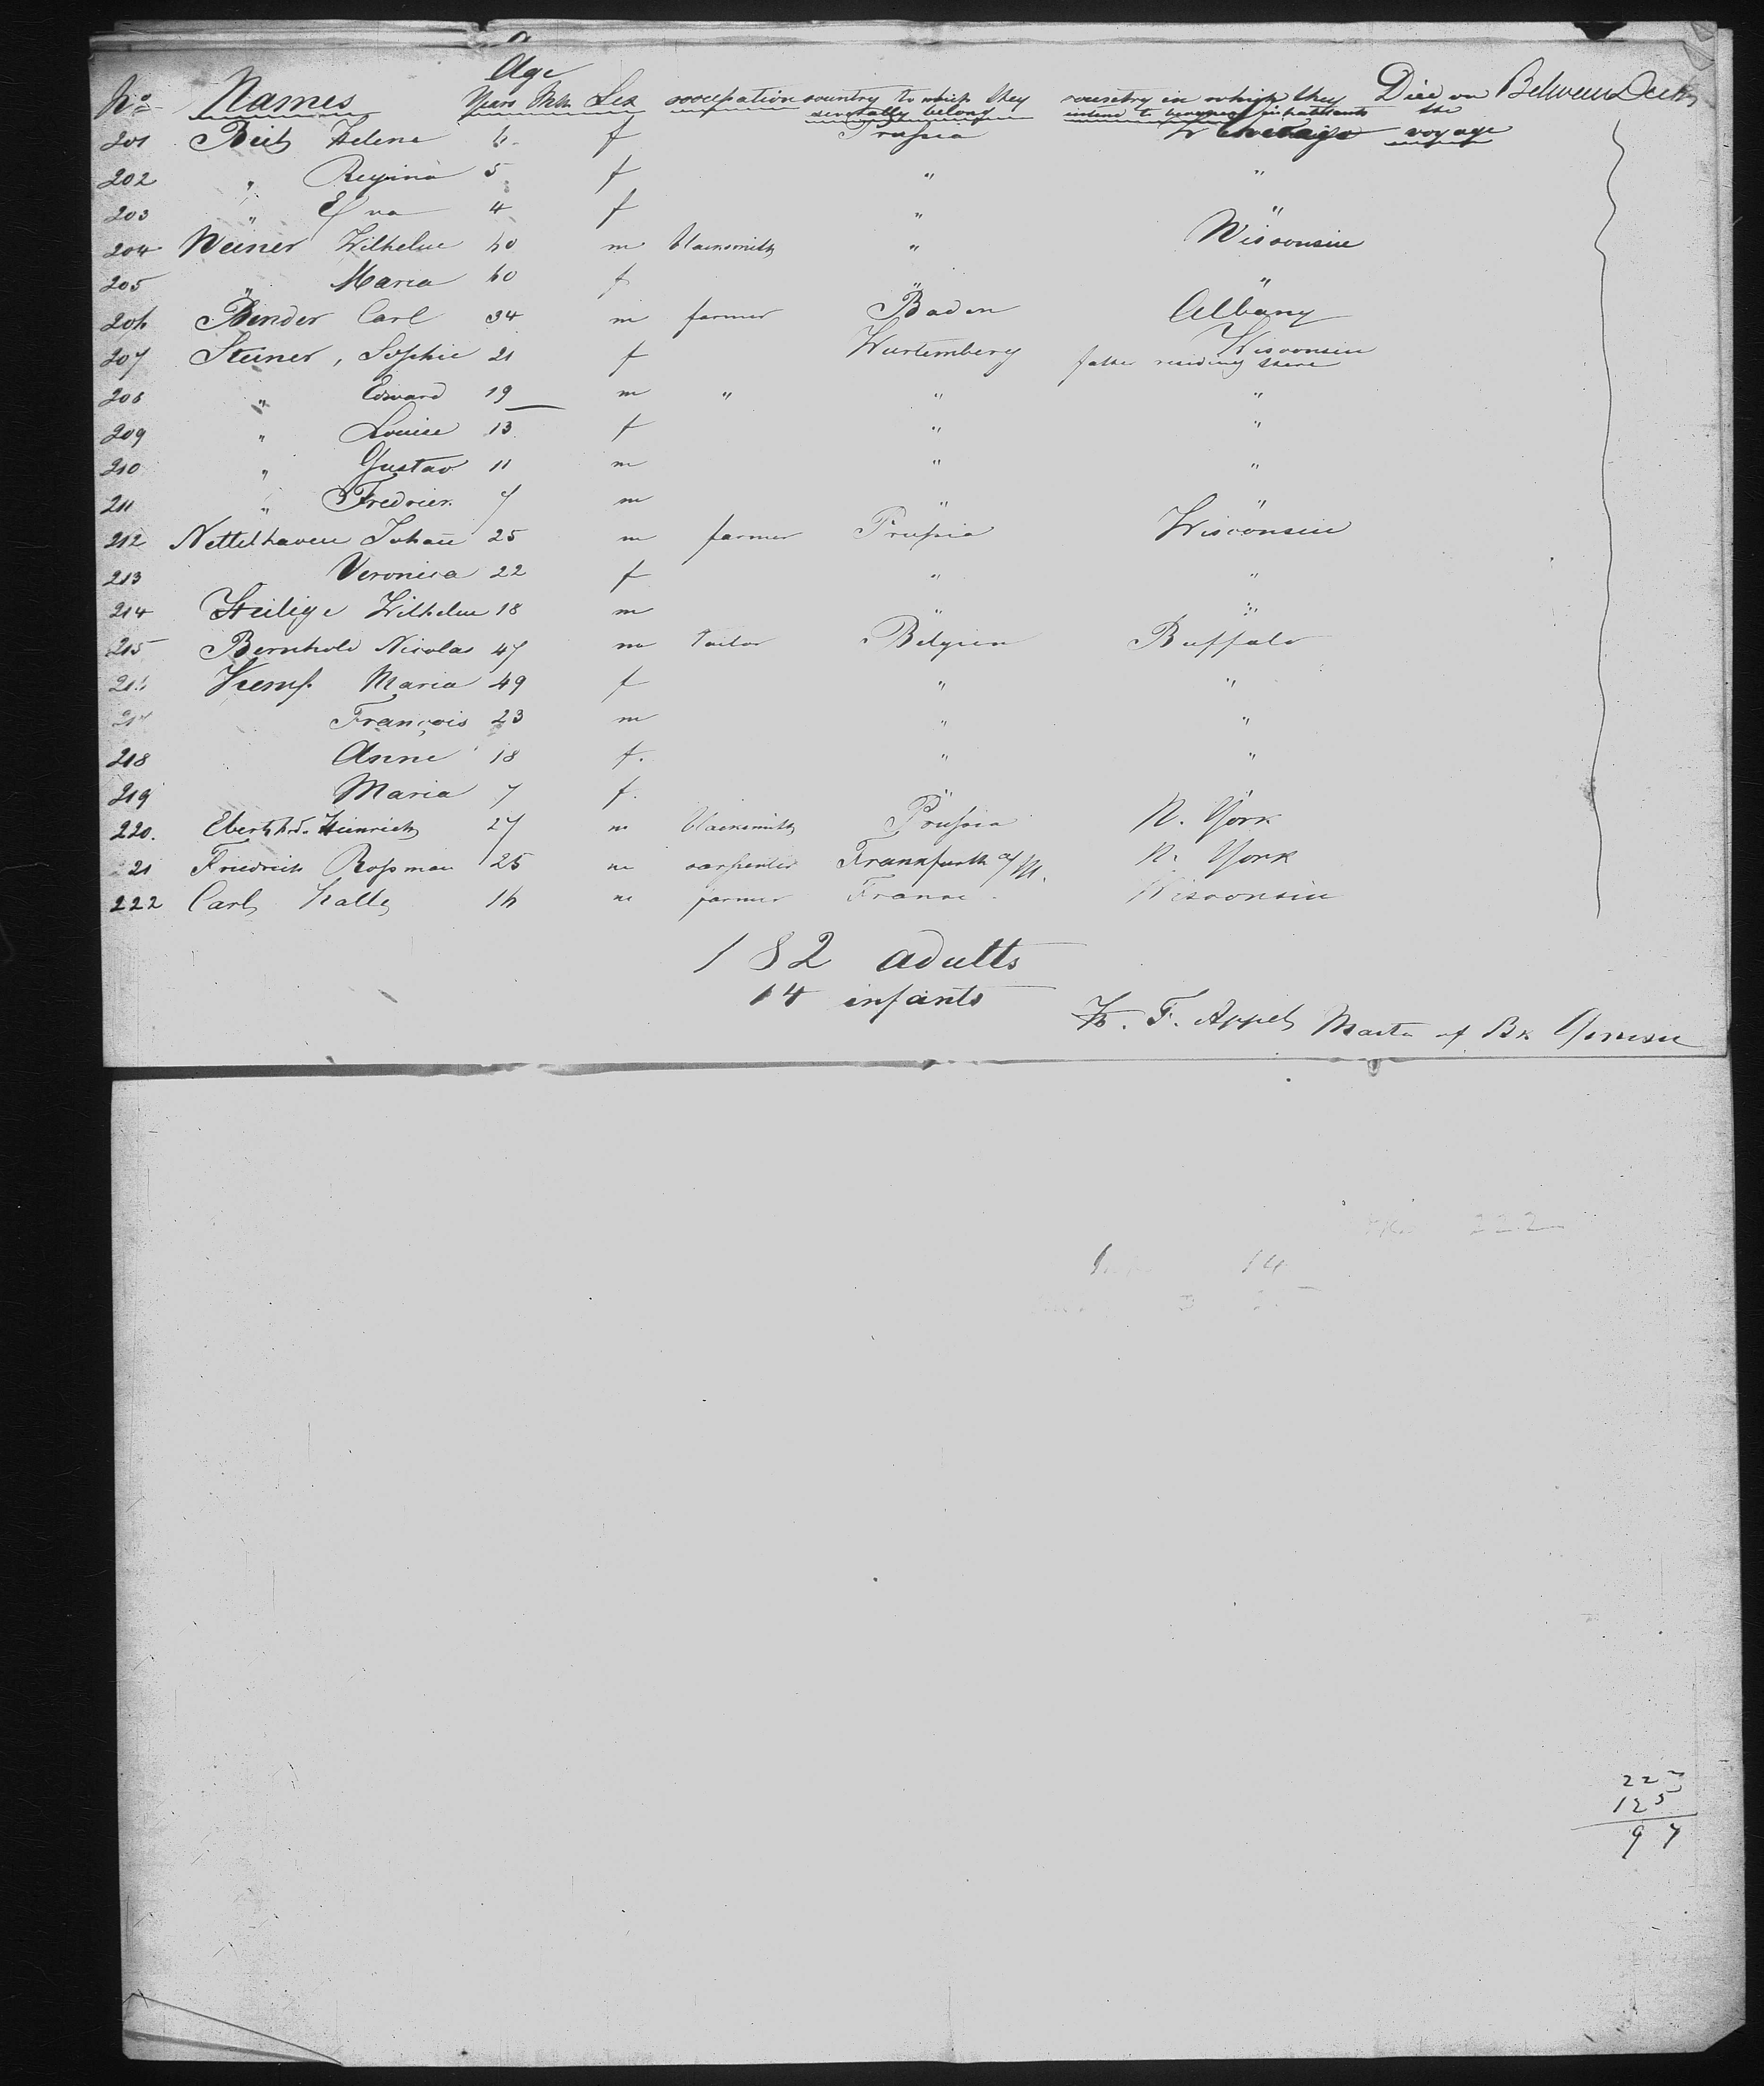 Age
No Names Years Mth Sex occupation country to which they severally belong country in which they intend to become inhabitants Died on the voyage Between Decks
201 Beit Helene 6 f Prussia
202 " Regina 5 f " "
203 " Eva 4 f " "
204 Weiner Wilhelm 60 m blacksmith " Wisconsin
205 " Maria 60 f " "
206 Bender Carl 34 m farmer Baden Albany
207 Steiner, Sophie 21 f Wurtemberg Wisconsin father residing there
208 " Edward 19 m " " "
209 " Louise 13 f " "
210 " Gustav 11 m " "
211 " Fredrick 7 m " "
212 Nettelhaven Johan 25 m farmer Prussia Wisconsin
213 Veronica 22 f " "
214 Heilige Wilhelm 18 m " "
215 Bernhold Nicolas 47 m tailor Belgien Buffalo
216 Kemp Maria 49 f " "
217 François 23 m " "
218 Anne 18 f. " "
219 Maria 7 f. "
220. Eberhrd. Heinrich 27 m blacksmith Prussia N. York
21 Friedrich Rossman 25 m carpenter Frankfurth a/M. N. York
222 Carl 16 m farmer France Wisconsin
182 adults
14 infants
F. Appel Master of Bk
222
14
222
125
97